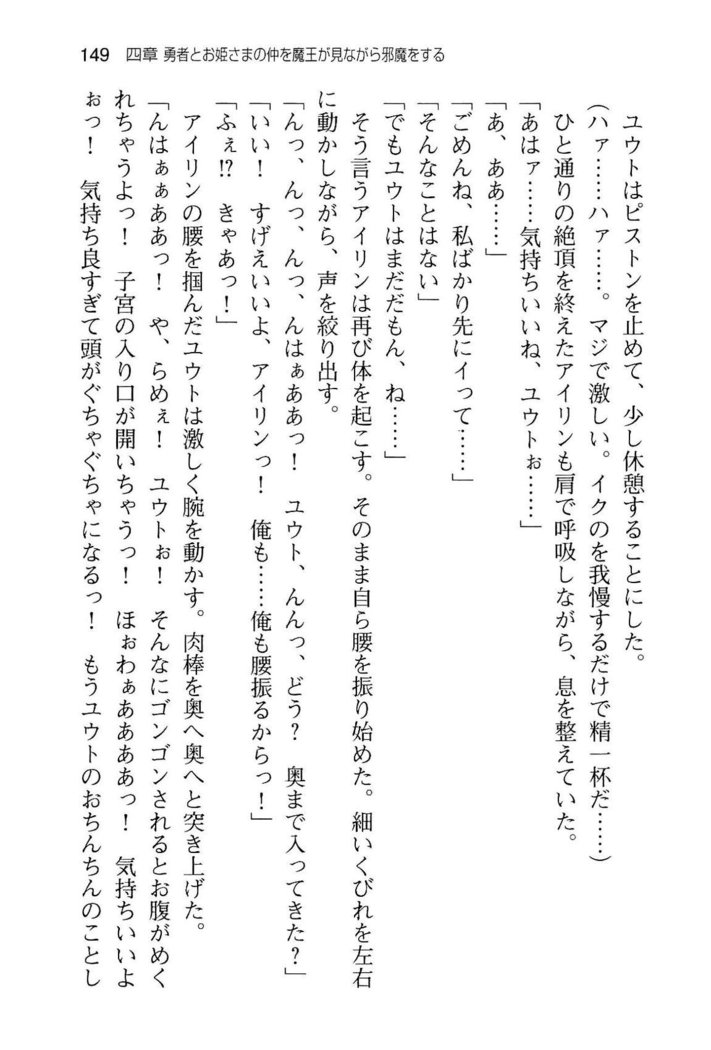 149 四章 勇者とお姫さまの仲を魔王が見ながら邪魔をする
ユウトはピストンを止めて、少し休憩することにした。
(ハァ……ハァ……。マジで激しい。イクのを我慢するだけで精一杯だ……)
ひと通りの絶頂を終えたアイリンも肩で呼吸しながら、息を整えていた。
「あはァ……気持ちいいね、ユウトぉ……」
「あ、ああ……」
「ごめんね、私ばかり先にイって……」
「そんなことはない」
「でもユウトはまだだもん、ね……」
そう言うアイリンは再び体を起こす。そのまま自ら腰を振り始めた。細いくびれを左右
に動かしながら、声を絞り出す。
「んっ、んっ、んっ、んはぁああっ! ユウト、んんっ、どう? 奥まで入ってきた?」
「いい! すげえいいよ、アイリンっ! 俺も……俺も腰振るからっ!」
「ふぇ!? きゃあっ!」
アイリンの腰を掴んだユウトは激しく腕を動かす。肉棒を奥へ奥へと突き上げた。
「んはぁぁああっ! や、らめぇ! ユウトぉ! そんなにゴンゴンされるとお腹がめく
れちゃうよっ! 子宮の入り口が開いちゃうっ! ほぉわぁああああっ! 気持ちいいよ
ぉっ! 気持ち良すぎて頭がぐちゃぐちゃになるっ! もうユウトのおちんちんのことし